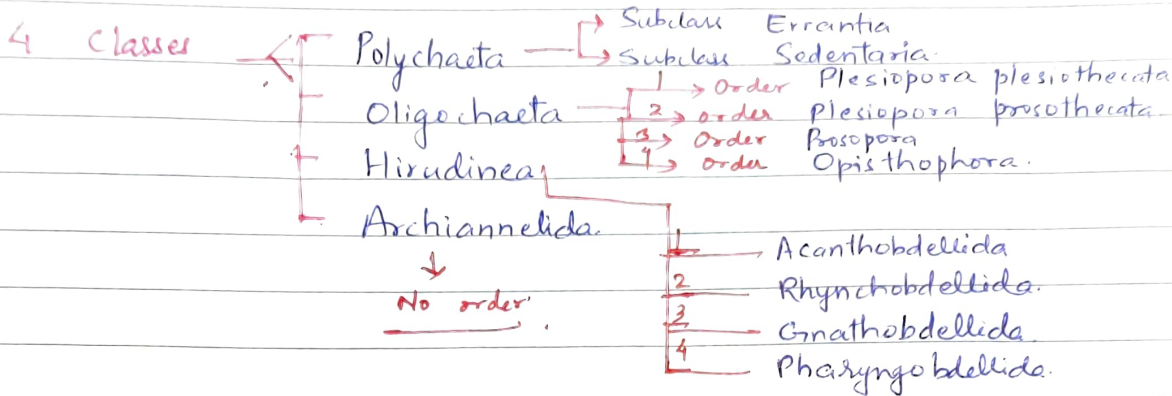 4 Classes
Polychaeta
Subclass Errantia
Subclass Sedentaria.
Oligochaeta
1 Order Plesiopora plesiothecata
2 order Plesiopora prosothecata.
3 Order Prosopora
4 order Opisthophora.
Hirudinea
Archiannelida.
No order.
1 Acanthobdellida
2 Rhynchobdellida.
3 Gnathobdellida
4 Pharyngobdellida.